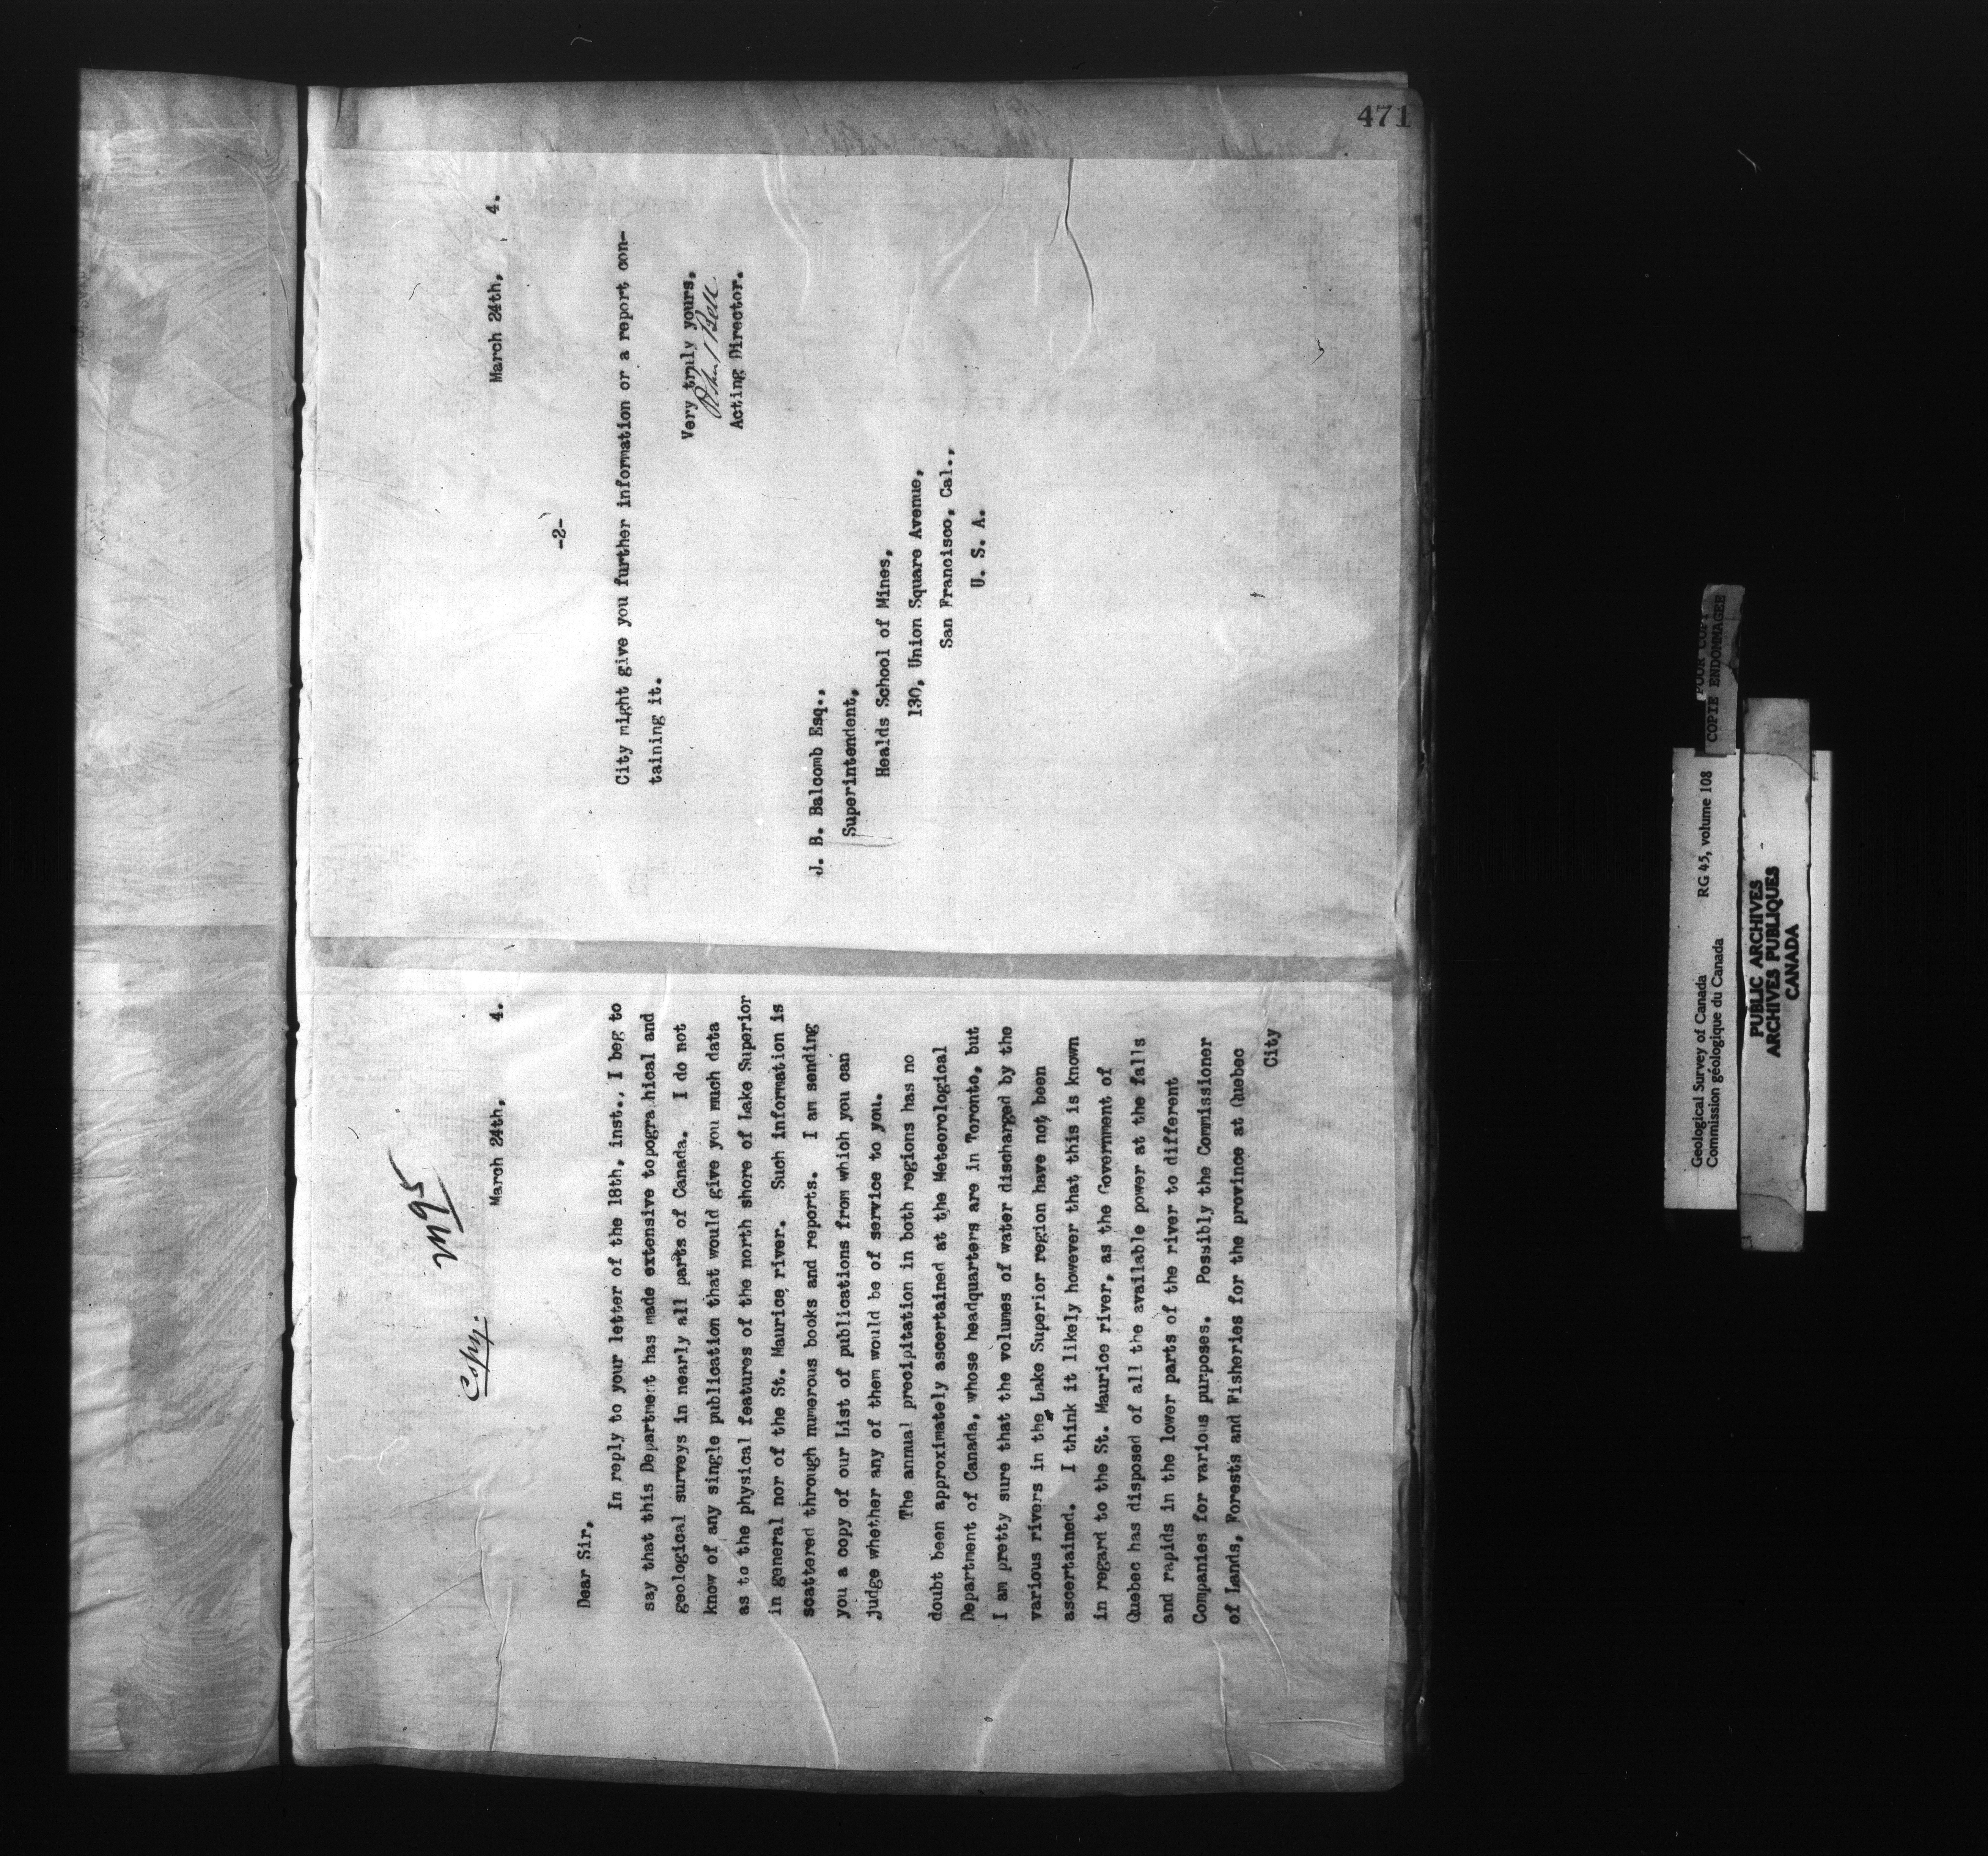 471
M95
Copy.
March 24th, 4.
Dear Sir,
In reply to your letter of the 18th, inst., I beg to
say that this Department has made extensive topogra hical and
geological surveys in nearly all parts of Canada. I do not
know of any single publication that would give you much data
as to the physical features of the north shore of Lake Superior
in general nor of the St. Maurice river. Such information is
scattered through numerous books and reports. I am sending
you a copy of our List of publications from which you can
judge whether any of them would be of service to you.
The annual precipitation in both regions has no
doubt been approximately ascertained at the Meteorological
Department of Canada, whose headquarters are in Toronto, but
I am pretty sure that the volumes of water discharged by the
various rivers in the Lake Superior region have not been
ascertained. I think it likely however that this is known
in regard to the St. Maurice river, as the Government of
Quebec has disposed of all the available power at the falls
and rapids in the lower parts of the river to different
Companies for various purposes. Possibly the Commissioner
of Lands, Forests and Fisheries for the province at Quebec
City
March 24th, 4.
-2-
City might give you further information or a report con-
taining it.
Very truly yours,
Robert Bell
Acting Director.
J. B. Balcomb Esq.,
Superintendent,
Healds School of Mines,
130, Union Square Avenue,
San Francisco, Cal.,
U. S. A.
Geological Survey of Canada
Commission géologique du Canada
RG 45, volume 108
POOR COPY
COPIE ENDOMMAGEE
PUBLIC ARCHIVES
ARCHIVES PUBLIQUES
CANADA